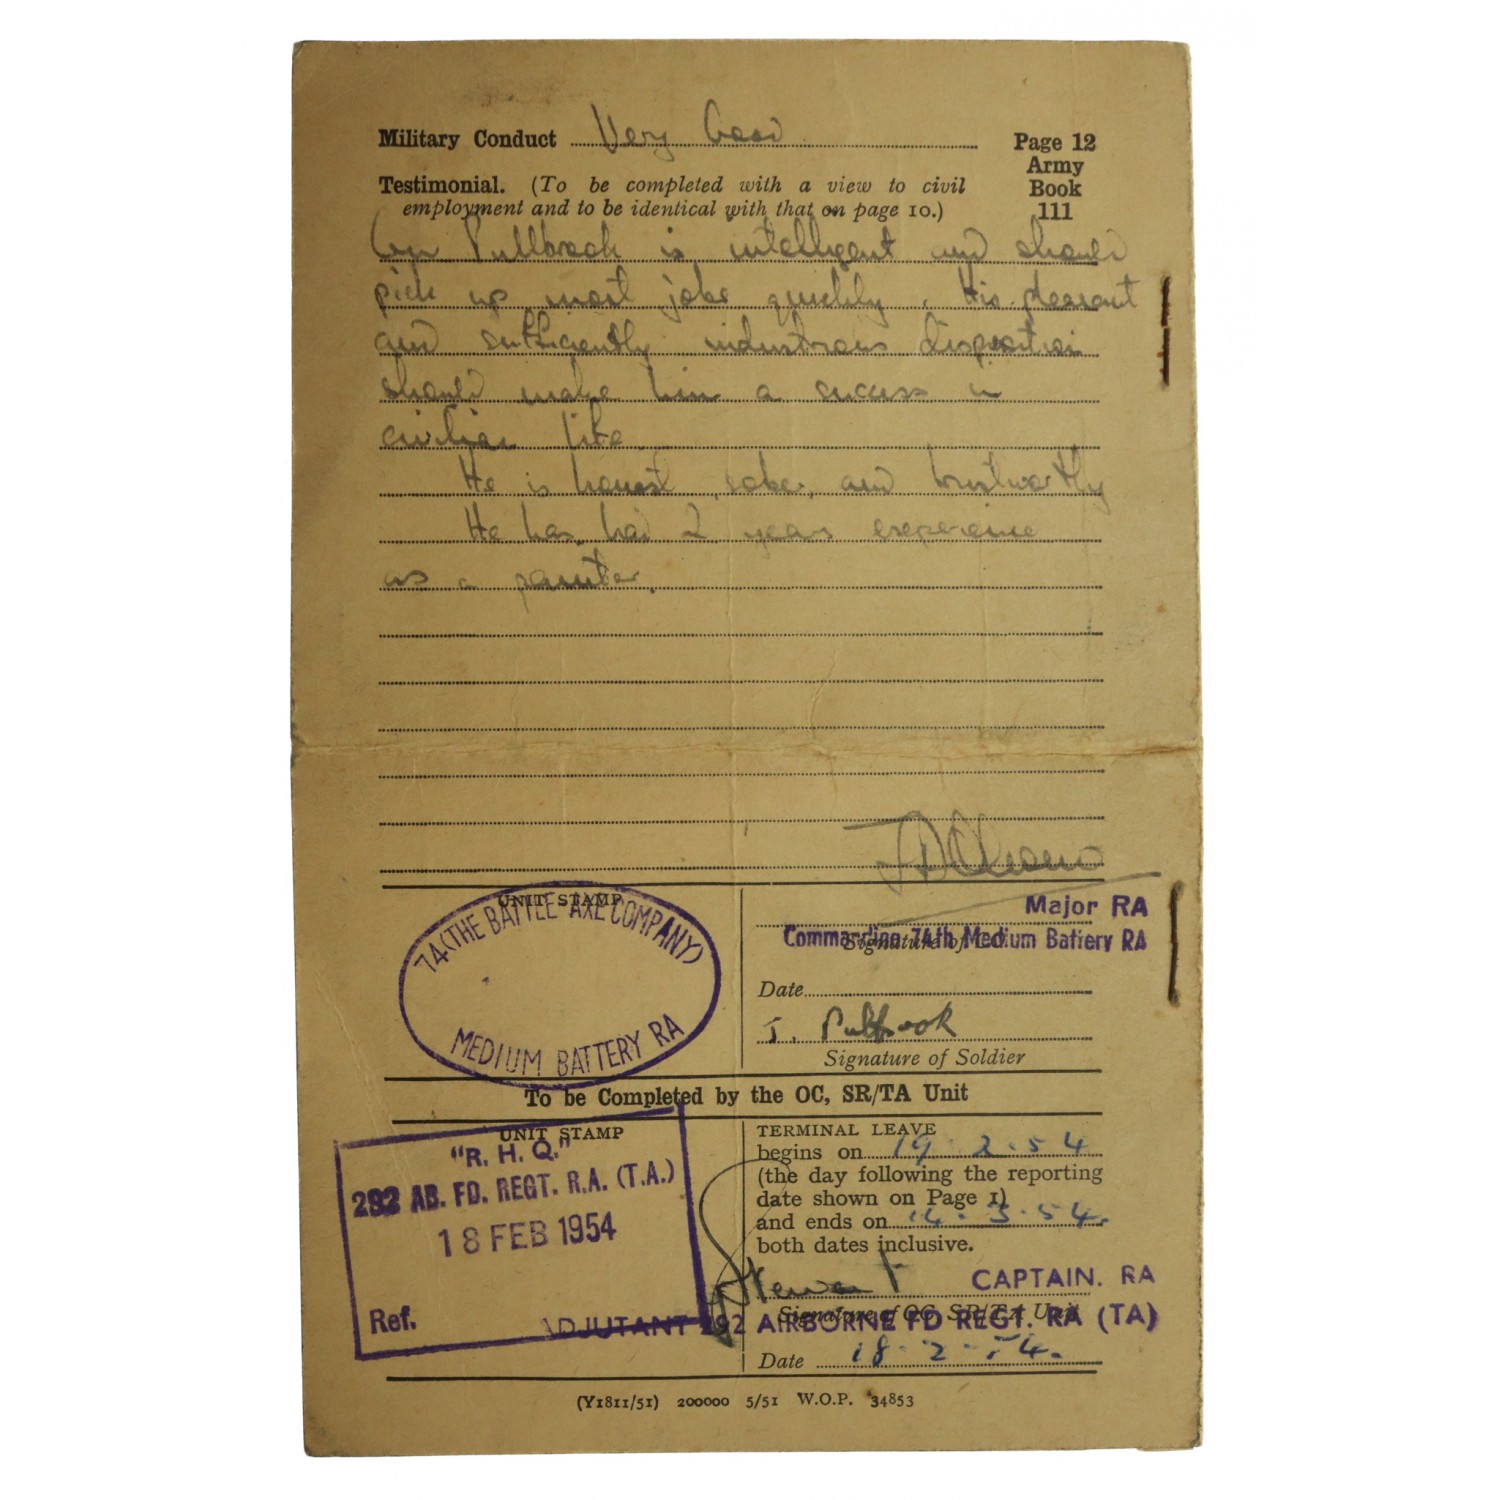 Military Conduct Very Good
Page 12
Army
Book
111
Testimonial. (To be completed with a view to civil
employment and to be identical with that on page 10.)
Pullbrook is intelligent and should
pick up most jobs quickly. His pleasant
and sufficiently industrious disposition
should make him a success in
civilian life
He is honest, sober, and trustworthy
He has had 2 years experience
as a painter.
UNIT STAMP
74 (THE BATTLE AXE COMPANY)
MEDIUM BATTERY RA
Major RA
Commanding 74th Medium Battery RA
Signature of
Date
J. Pullbrook
Signature of Soldier
To be Completed by the OC, SR/TA Unit
UNIT STAMP
"R. H. Q."
292 AB. FD. REGT. R.A. (T.A.)
18 FEB 1954
Ref.
TERMINAL LEAVE
begins on 19.2.54
(the day following the reporting
date shown on Page 1)
and ends on 14.3.54.
both dates inclusive.
Stewart
CAPTAIN. RA
Signature of OC, SR/TA Unit
ADJUTANT 292 AIRBORNE FD REGT. RA (TA)
Date 18.2.54.
(Y1811/51) 200000 5/51 W.O.P. 34853